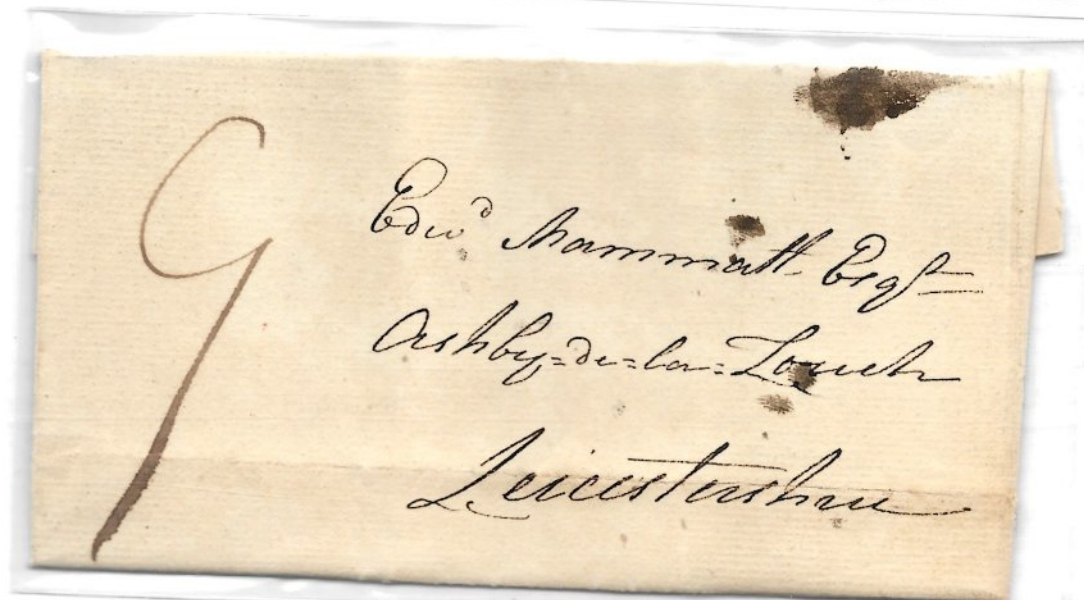 9
Edwd Mammatt Esqr
Ashby=de=la=Zouch
Leicestershire